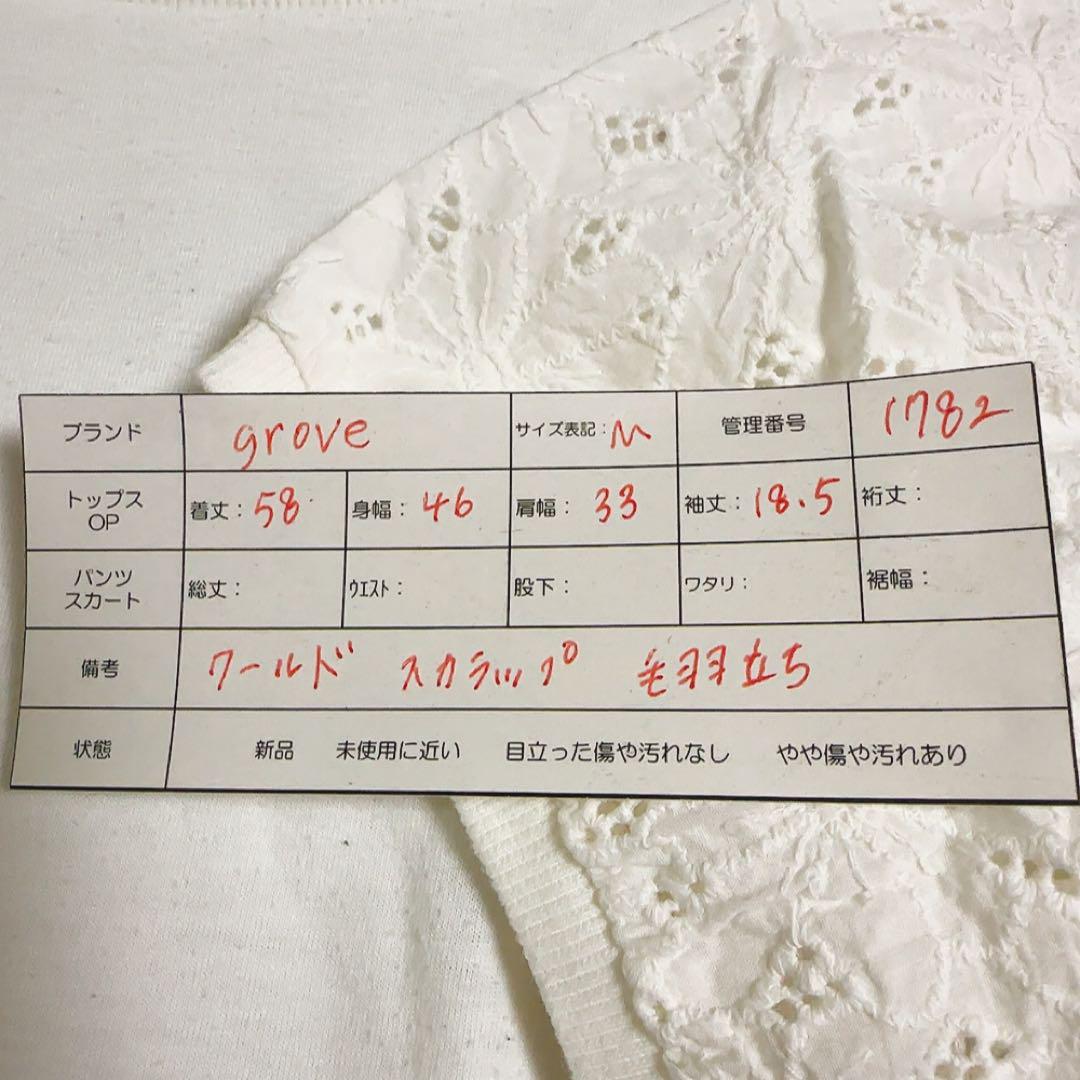 ブランド grove サイズ表記：M 管理番号 1782
トップス OP 着丈：58 身幅：46 肩幅：33 袖丈：18.5 裄丈：
パンツ スカート 総丈： ｳｴｽﾄ： 股下： ワタリ： 裾幅：
備考 ワールド スカラップ 毛羽立ち
状態 新品 未使用に近い 目立った傷や汚れなし やや傷や汚れあり